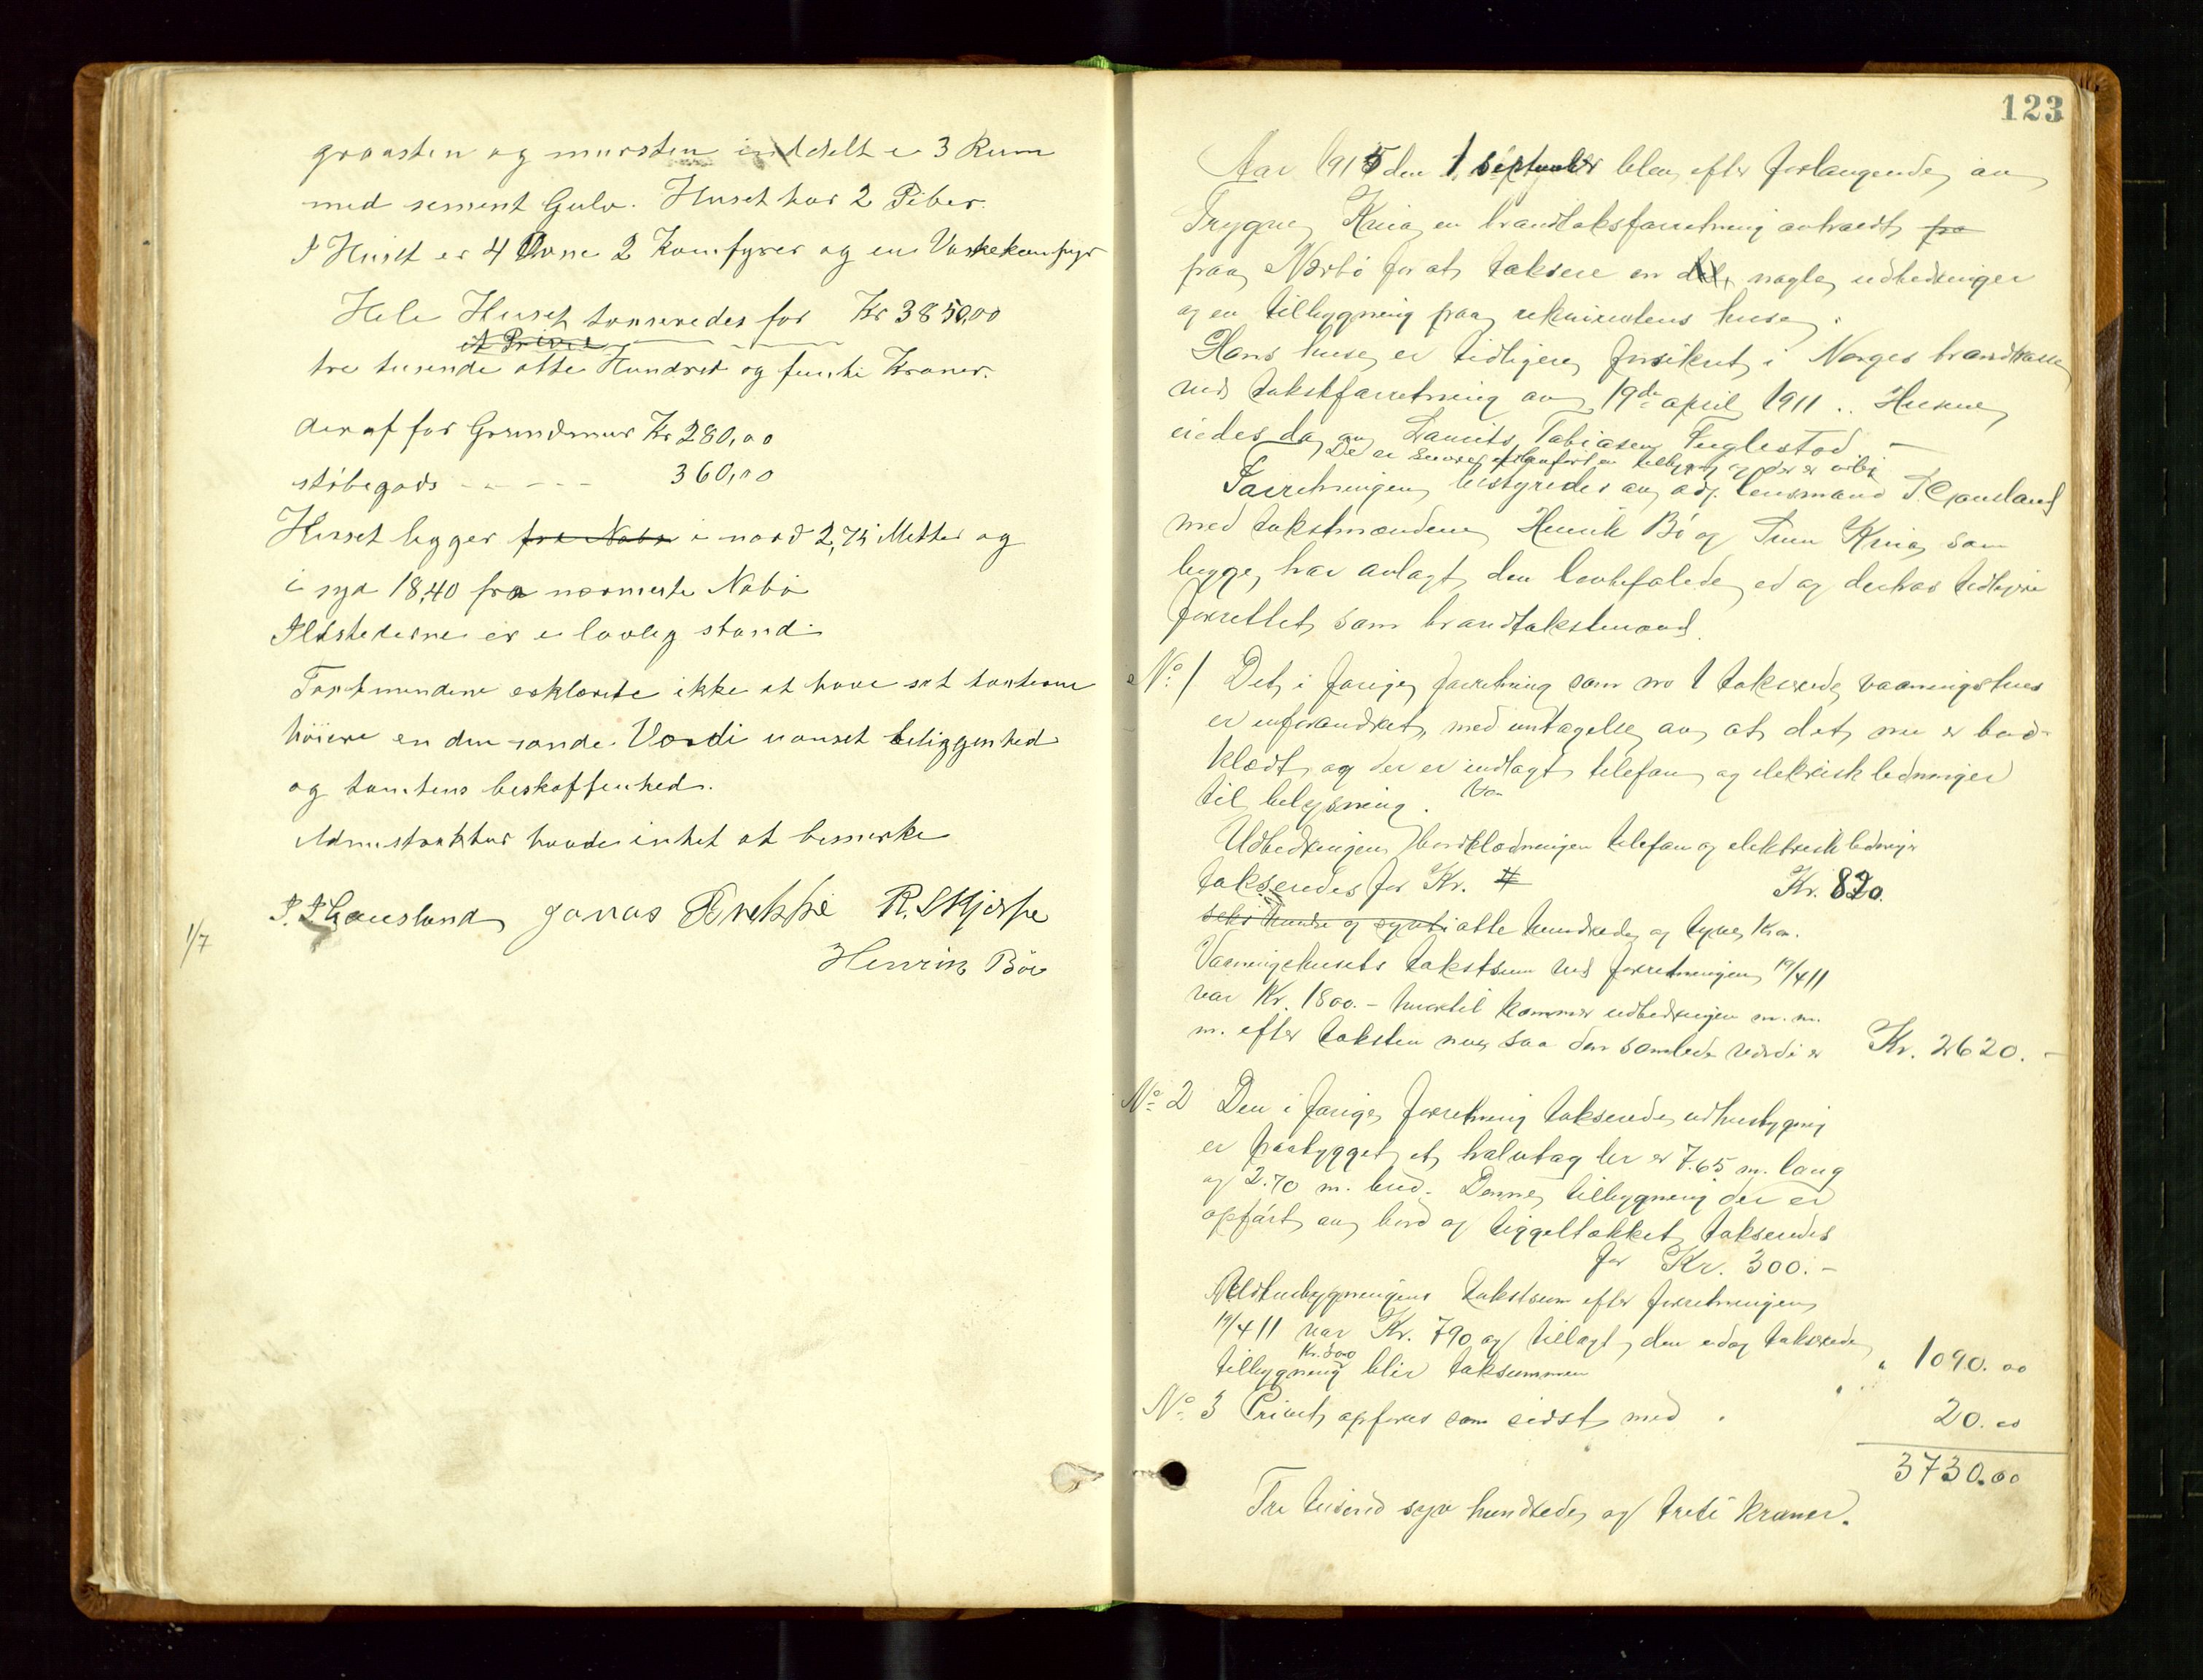 graasten og mursten inddelt i 3 Rum
med sement Gulv. Huset har 2 Piber.
I Huset er 4 Ovne 2 Komfyrer og en Vaskekomfyr
Hele Huset taxeredes for Kr 3850,00
et Privet
tre tusende otte Hundret og femti Kroner.
deraf for Grundmur Kr 280,00
støbegods - - - - 360,00
Huset ligger fra Nabo i nord 2,75 Metter og
i syd 18,40 fra nærmeste Nabo
Ildstederne er i lovlig stand
Taxtmendene erklærte ikke at have sat taxterne
höiere en den sande Værdi uanset beliggenhed
og tomtens beskaffenhed.
Admistraktur havde intet at bemerke
J. J. Gausland Jonas Brekke R. Skjerpe
1/7
Henrik Böe
123
Aar 1915 den 1 september blev efter forlangende av
Trygve Kvia en brandtaksforretning avholdt fra
paa Nærbö for at taksere en del, nogle udbedringer
og en tilbygning paa rekvirentens huse.
Hans huse er tidligere forsikret i Norges brandkasse
ved takstforretning av 19de april 1911.. Husene
eiedes da av Laurits Tobiasen Fuglestad -
De er senere tilbygning og der er
Forretningen bestyredes av adj. lensmand J. Gausland
med takstmændene Henrik Bö og Tum Kvia som
begge har avlagt den lovbefalede ed og derhos tidligere
forrettet som brandtakstmænd.
No. 1 Det i forrige forretning som no 1 takserede vaaningshus
er uforandret med untagelse av at det nu er bord-
klædt og der er indlagt telefon og elektrisk ledninger
til belysning.
Udbedringen bordklædningen telefon og elektrisk ledninger
takseredes for Kr. Kr. 820.
seks hundre og syvti otte hundrede og tyve Kr.
Vaaningshusets takstsum ved forretningen 19/4 11
var Kr. 1800.- hvortil kommer udbedringen m. m.
m. efter taksten nu, saa den samlede værdi er Kr. 2620.-
No. 2 Den i forrige forretning takserede udhusbygning
er paabygget et halvtag der er 7.65 m. lang
og 2.70 m. bred. Denne tilbygning der er
opført av bord og tiggeltækket takseredes
for Kr. 300.-
Udhusbygningens takstsum efter forretningen
19/4 11 var Kr. 790 og tillagt den idag takserede
Kr. 300
tilbygning blir taksummen " 1090.00
No. 3 Privet opføres som sidst med 20.00
3730.00
Tre tusend syv hundrede og treti kroner.